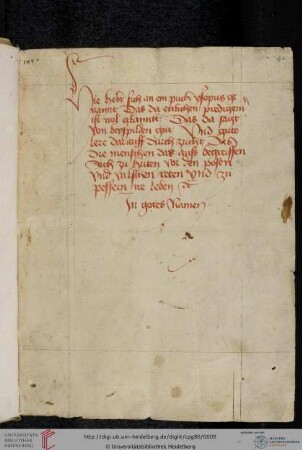 Hie hebt sich an ein puch ysopus ge
nannt Das da etlichen predigern
ist wol erkannt Das da sagt
von beyspilden gut Vnd gute
lere dar auß durch zucht Das
die menschen das auß begreiffen
Sich zu hüten vor den posen
Vnd valschen reten Vnd zu
pessern ire leben
In gotes Namen
UNIVERSITÄTS-
BIBLIOTHEK
HEIDELBERG
http://digi.ub.uni-heidelberg.de/diglit/cpg86/0009
© Universitätsbibliothek Heidelberg